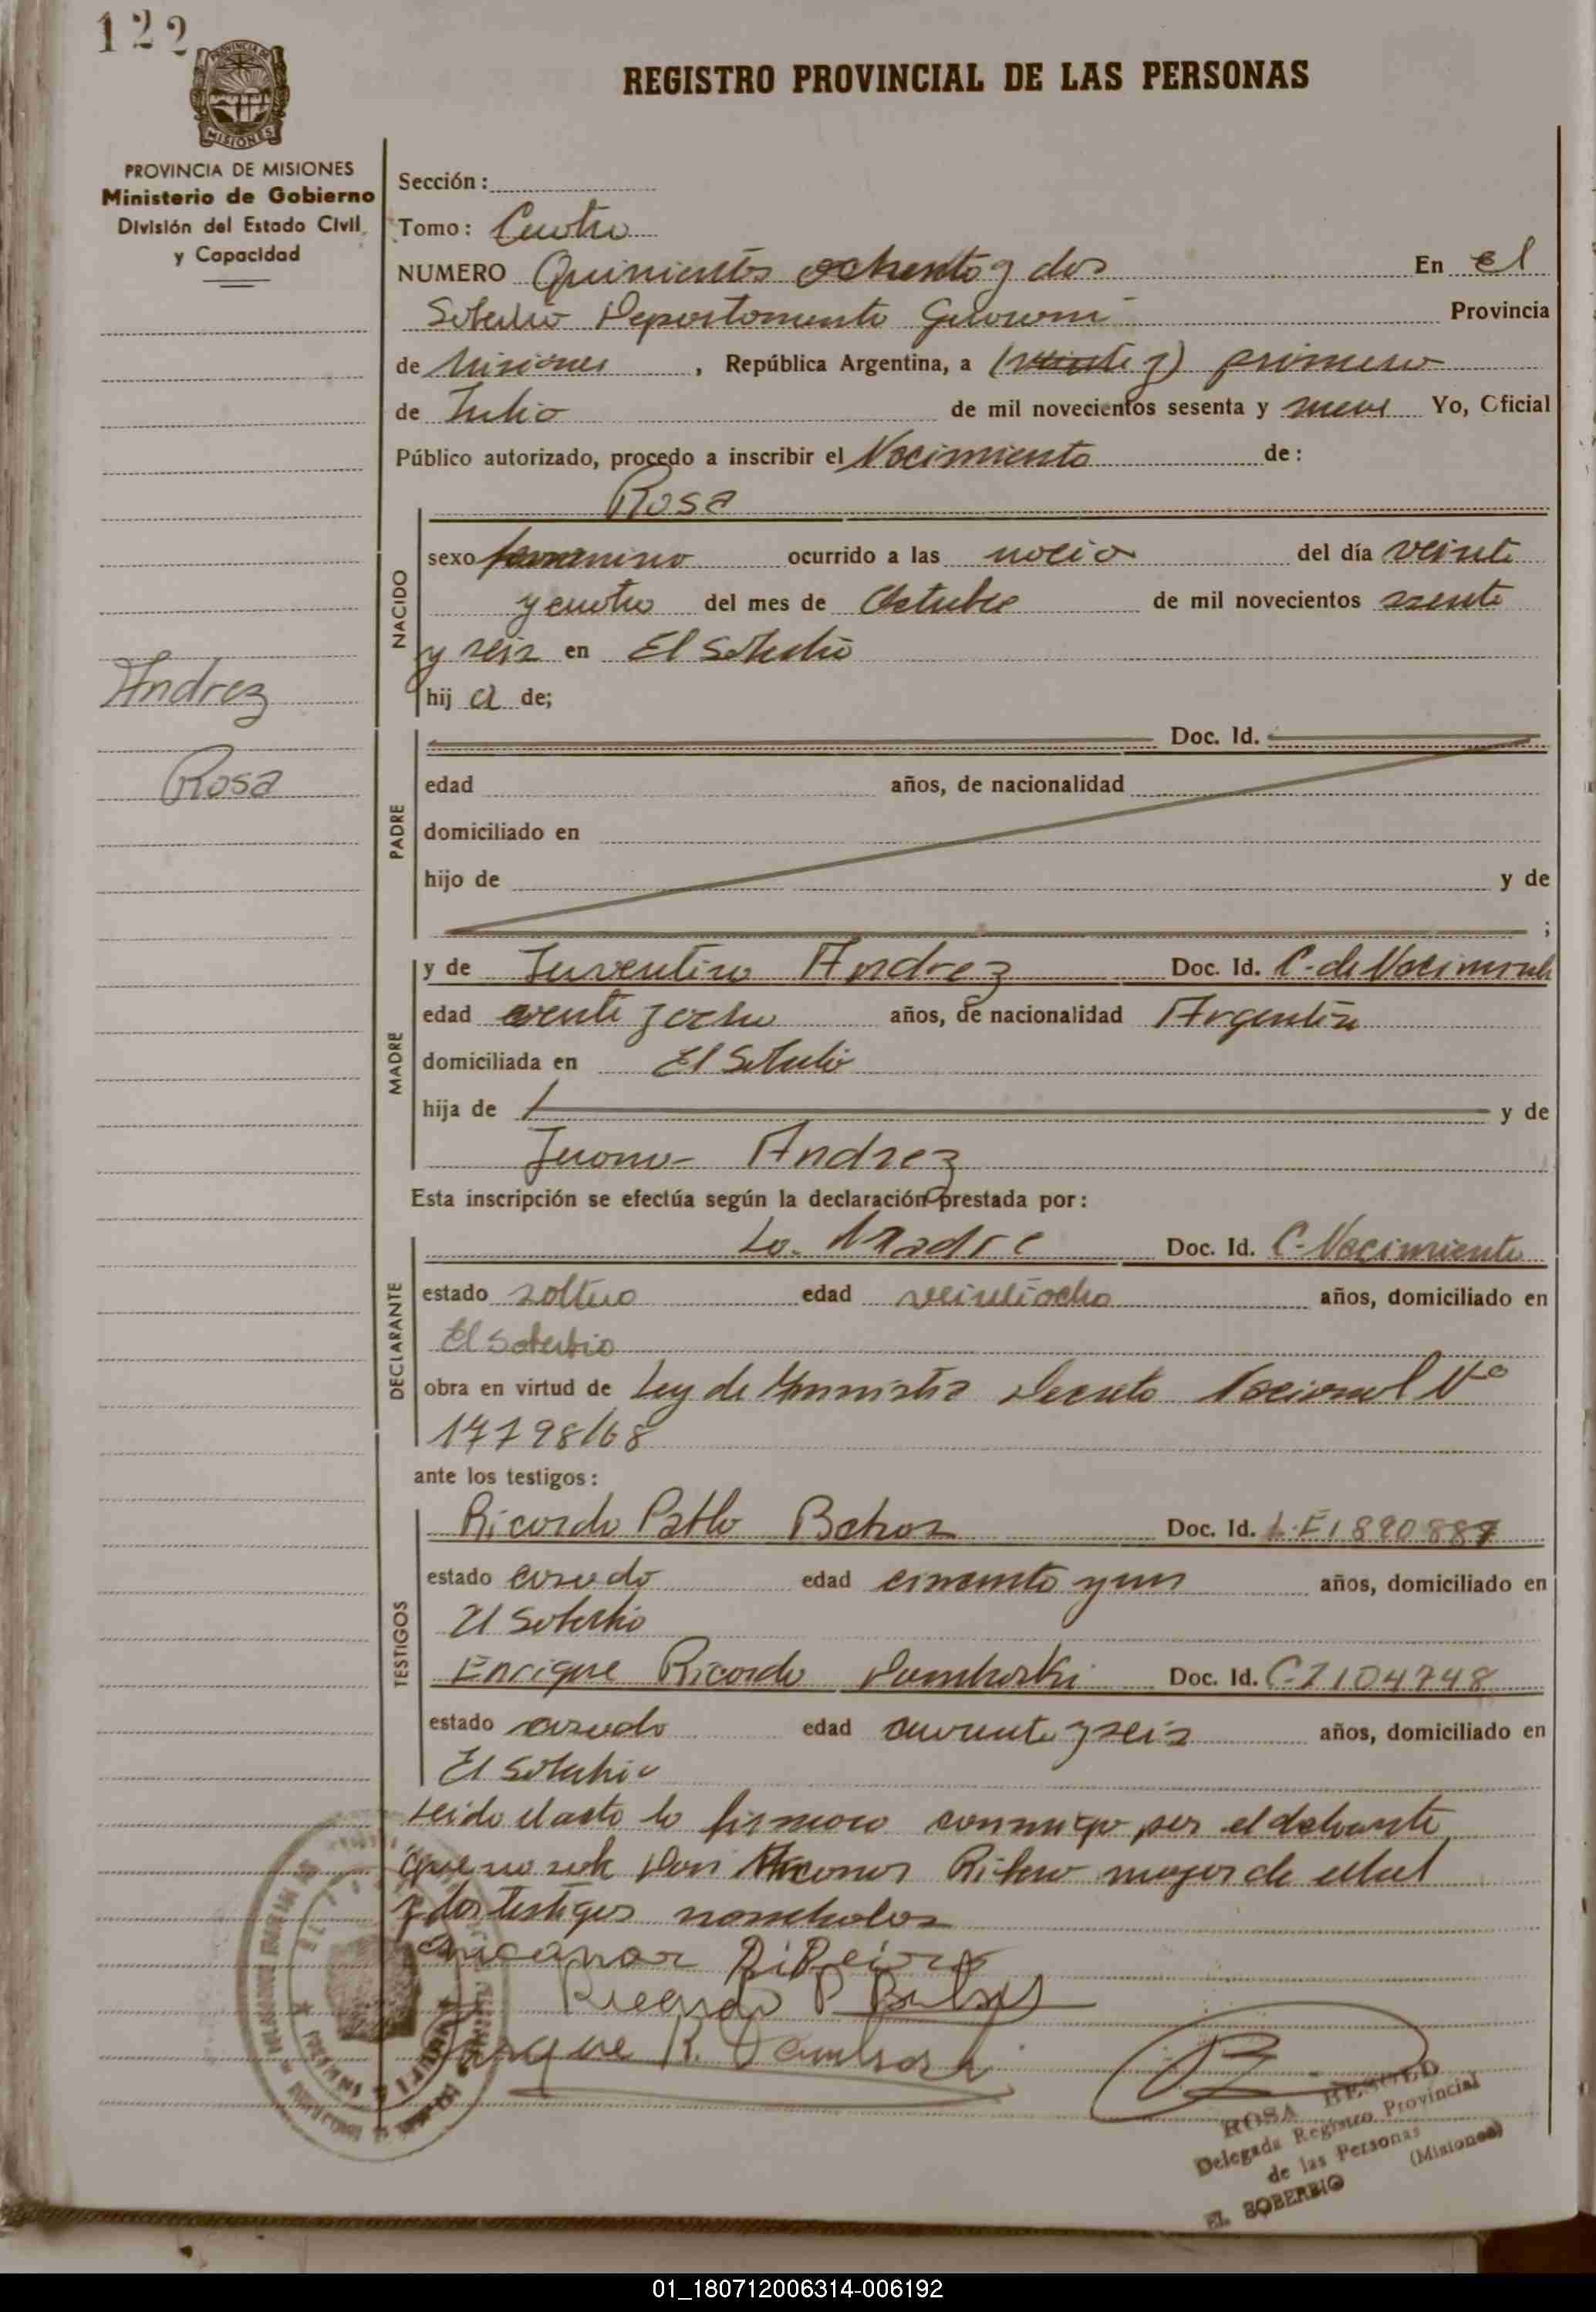 122
PROVINCIA DE MISIONES
REGISTRO PROVINCIAL DE LAS PERSONAS
PROVINCIA DE MISIONES
Ministerio de Gobierno
División del Estado Civil
y Capacidad
Sección:
Tomo: Cuatro
NUMERO Quinientos ochenta y dos En el
Soberbio Departamento Guarani Provincia
de Misiones, República Argentina, a (veinte y) primero
de Julio de mil novecientos sesenta y nueve Yo, Oficial
Público autorizado, procedo a inscribir el Nacimiento de:
Rosa
NACIDO
sexo femenino ocurrido a las del día veinte
y cuatro del mes de Octubre de mil novecientos sesenta
y seis en El Soberbio
hija de;
Andrez
Rosa
PADRE
Doc. Id.
edad años, de nacionalidad
domiciliado en
hijo de y de
;
MADRE
y de Juventina Andrez Doc. Id. C. de Nacimiento
edad veinte y ocho años, de nacionalidad Argentina
domiciliada en El Soberbio
hija de y de
Juana Andrez
Esta inscripción se efectúa según la declaración prestada por:
DECLARANTE
La Madre Doc. Id. C. Nacimiento
estado soltera edad veintiocho años, domiciliado en
El Soberbio
obra en virtud de Ley de Amnistia Decreto Nacional Nº
17798/68
ante los testigos:
TESTIGOS
Ricardo Pablo Doc. Id. L.E 1890887
estado casado edad cincuenta y un años, domiciliado en
El Soberbio
Enrique Ricardo Doc. Id. C.I 104748
estado casado edad cuarenta y seis años, domiciliado en
El Soberbio
Leido el acta la firman conmigo por el
que no sabe Don Nicanor Ribero mayor de edad
y los testigos nombrados
Nicanor Ribeiro
Ricardo P.
Enrique R.
ROSA
Delegada Registro Provincial
de las Personas
EL SOBERBIO (Misiones)
01_180712006314-006192